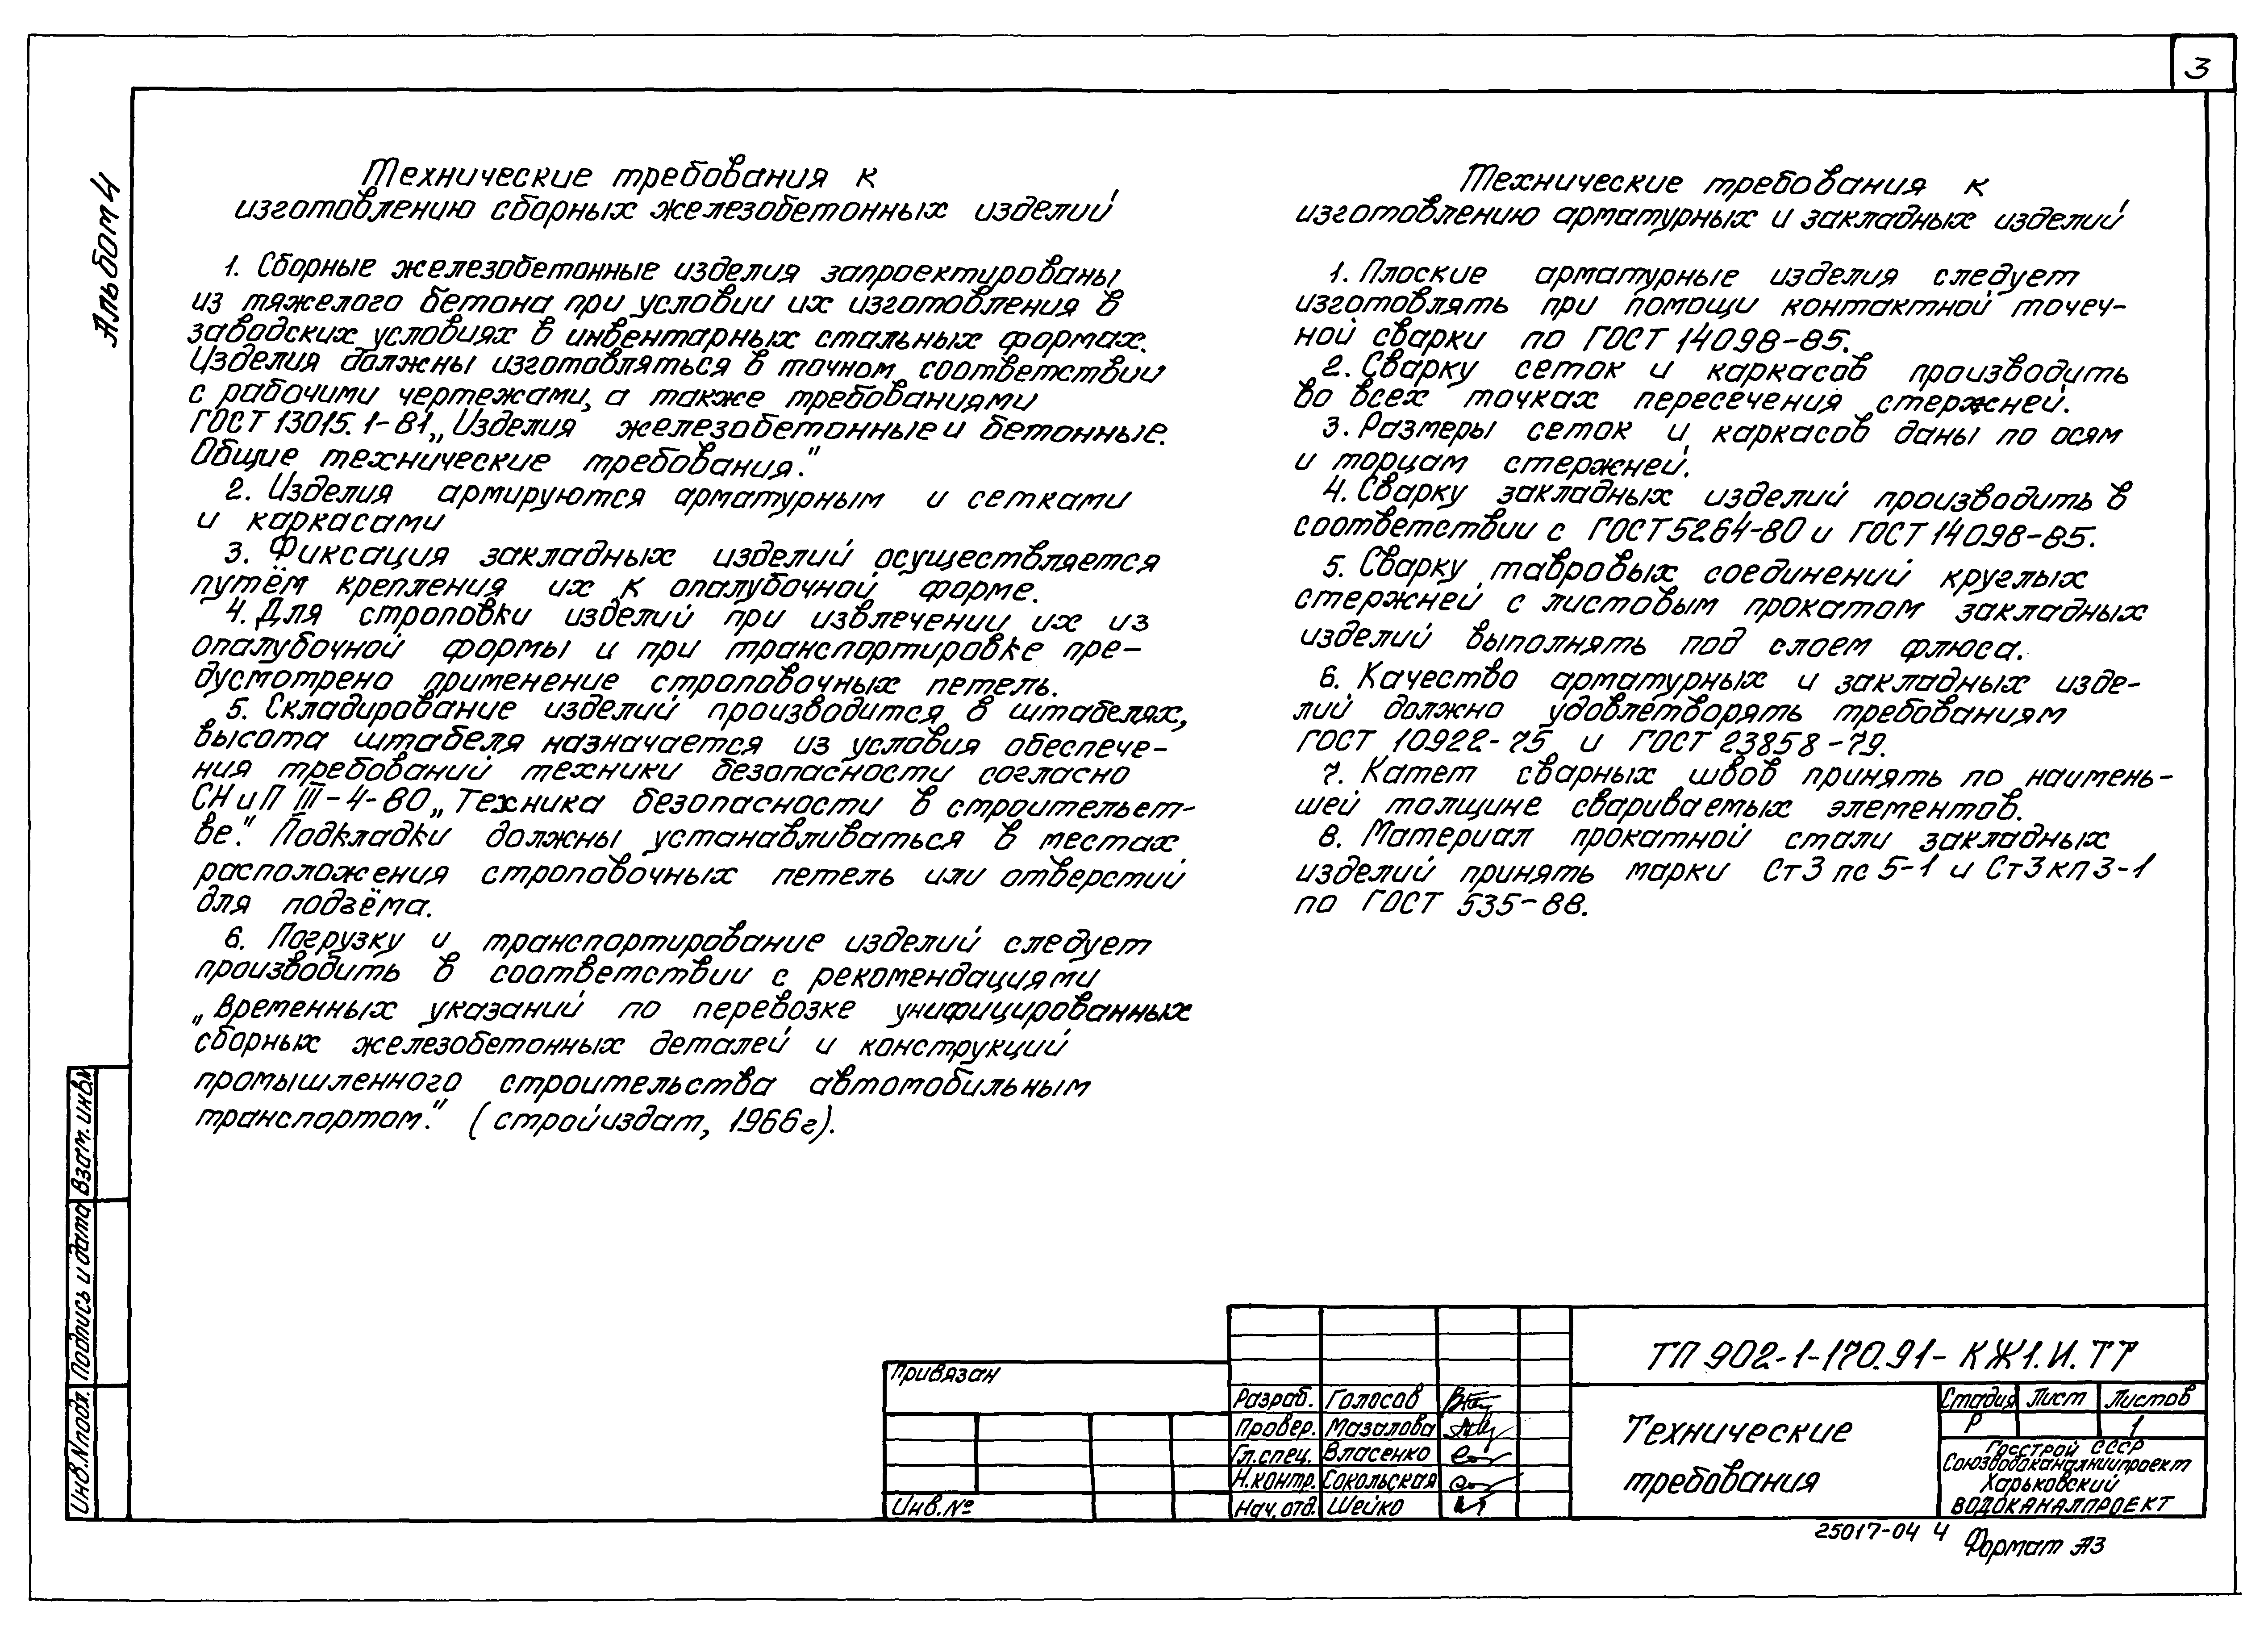 3
Альбом 4
Технические требования к
изготовлению сборных железобетонных изделий
1. Сборные железобетонные изделия запроектированы
из тяжелого бетона при условии их изготовления в
заводских условиях в инвентарных стальных формах.
Изделия должны изготовляться в точном соответствии
с рабочими чертежами, а также требованиями
ГОСТ 13015.1-81 „Изделия железобетонные и бетонные.
Общие технические требования."
2. Изделия армируются арматурным и сетками
и каркасами
3. Фиксация закладных изделий осуществляется
путём крепления их к опалубочной форме.
4. Для строповки изделий при извлечении их из
опалубочной формы и при транспортировке пре-
дусмотрено применение строповочных петель.
5. Складирование изделий производится в штабелях,
высота штабеля назначается из условия обеспече-
ния требований техники безопасности согласно
СНиП III-4-80 „Техника безопасности в строительст-
ве". Подкладки должны устанавливаться в местах
расположения строповочных петель или отверстий
для подъёма.
6. Погрузку и транспортирование изделий следует
производить в соответствии с рекомендациями
„Временных указаний по перевозке унифицированных
сборных железобетонных деталей и конструкций
промышленного строительства автомобильным
транспортом." (стройиздат, 1966г).
Технические требования к
изготовлению арматурных и закладных изделий
1. Плоские арматурные изделия следует
изготовлять при помощи контактной точеч-
ной сварки по ГОСТ 14098-85.
2. Сварку сеток и каркасов производить
во всех точках пересечения стержней.
3. Размеры сеток и каркасов даны по осям
и торцам стержней.
4. Сварку закладных изделий производить в
соответствии с ГОСТ 5264-80 и ГОСТ 14098-85.
5. Сварку тавровых соединений круглых
стержней с листовым прокатом закладных
изделий выполнять под слоем флюса.
6. Качество арматурных и закладных изде-
лий должно удовлетворять требованиям
ГОСТ 10922-75 и ГОСТ 23858-79.
7. Катет сварных швов принять по наимень-
шей толщине свариваемых элементов.
8. Материал прокатной стали закладных
изделий принять марки Ст3пс5-1 и Ст3кп3-1
по ГОСТ 535-88.
Взам. инв.№
Подпись и дата
Инв.№подл.
Привязан
Инв.№
Разраб. Голосов
Провер. Мазалова
Гл.спец. Власенко
Н.контр. Сокольская
Нач.отд. Шейко
ТП 902-1-170.91-КЖ1.И.ТТ
Технические
требования
Стадия Лист Листов
Р 1
Госстрой СССР
Союзводоканалниипроект
Харьковский
ВОДОКАНАЛПРОЕКТ
25017-04 4
Формат А3